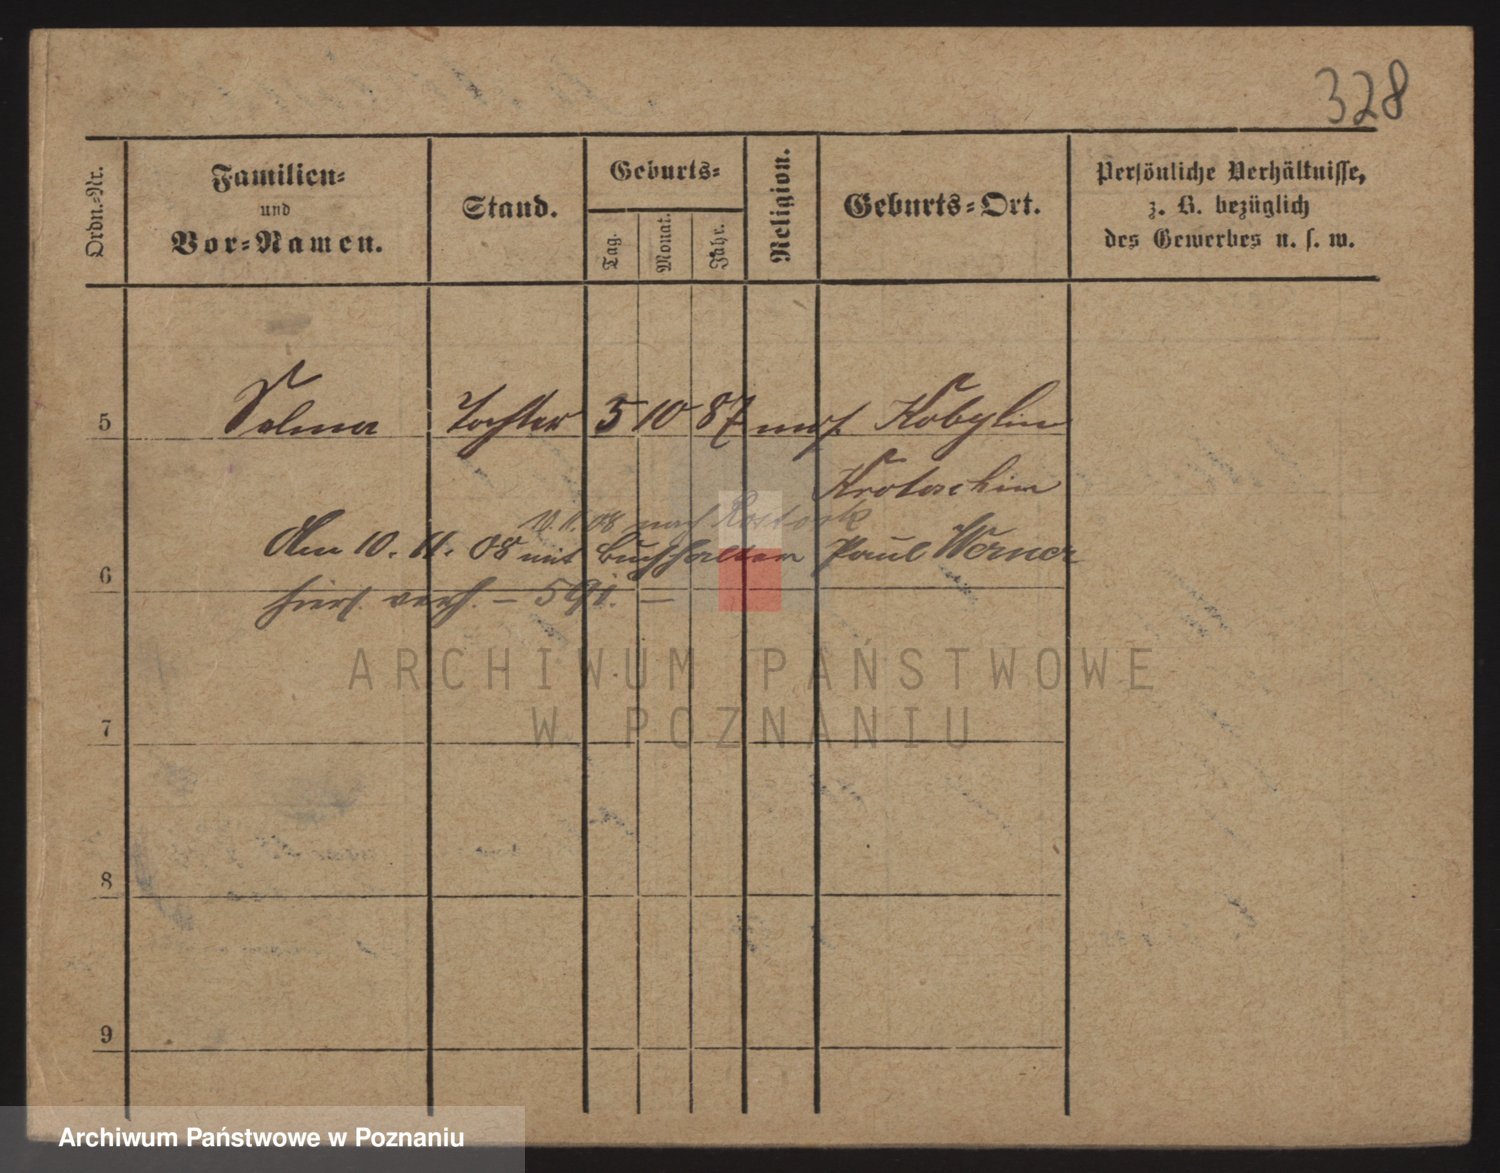 328
Ordn.-Nr.
Familien-
und
Vor-Namen.
Stand.
Geburts-
Tag.
Monat.
Jahr.
Religion.
Geburts-Ort.
Persönliche Verhältnisse,
z. B. bezüglich
des Gewerbes u. s. w.
5 Selma Tochter 5 10 87 mos. Kobylin
Krotoschin
10.11.08 nach Rostock
6 Am 10. 11. 08 mit Buchhalter Paul Werner
hier verh. –
ARCHIWUM PAŃSTWOWE
W POZNANIU
7
8
9
Archiwum Państwowe w Poznaniu